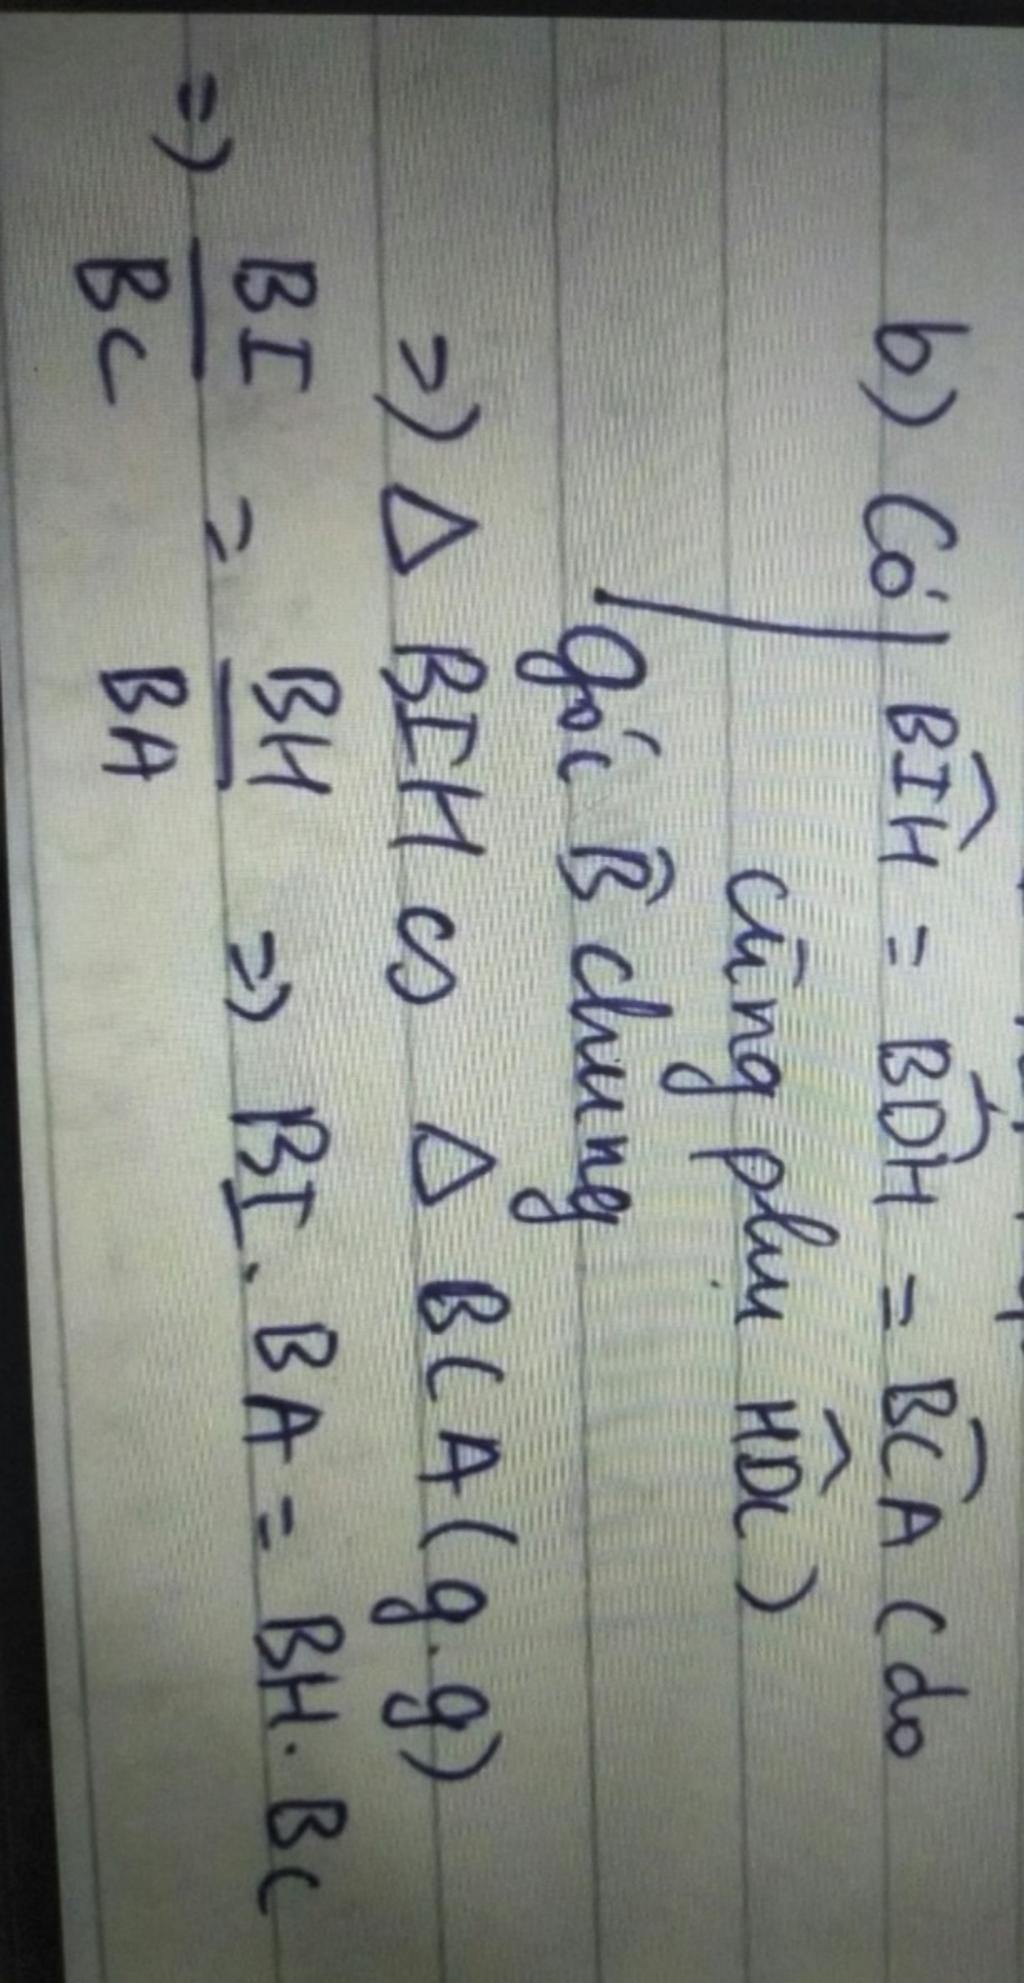 b) Có BIH = BDH = BCA (do
cùng phụ HDC)
góc B chung
=) Δ BIH ᔕ Δ BCA (g.g)
=) BI/BC = BH/BA =) BI . BA = BH . BC